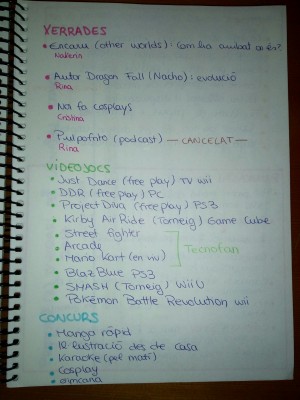 XERRADES
• Encarni (other worlds): Com ha anat on és?
Nakkerin
• Autor Dragon Fall (Nacho): evolució
Rina
• Noi fa cosplays
Cristina
• Pulpofrito (podcast) — CANCELAT —
Rina
VIDEOJOCS
• Just Dance (free play) TV wii
• DDR (free play) PC
• Project Diva (free play) PS3
• Kirby Air Ride (Torneig) Game Cube
• Street fighter
• Arcade
Tecnofan
• Mario Kart (en wii)
• BlazBlue PS3
• SMASH (Torneig) Wii U
• Pokémon Battle Revolution wii
CONCURS
• Manga ràpid
• Il·lustració des de casa
• Karaoke (pel matí)
• Cosplay
• Gimcana